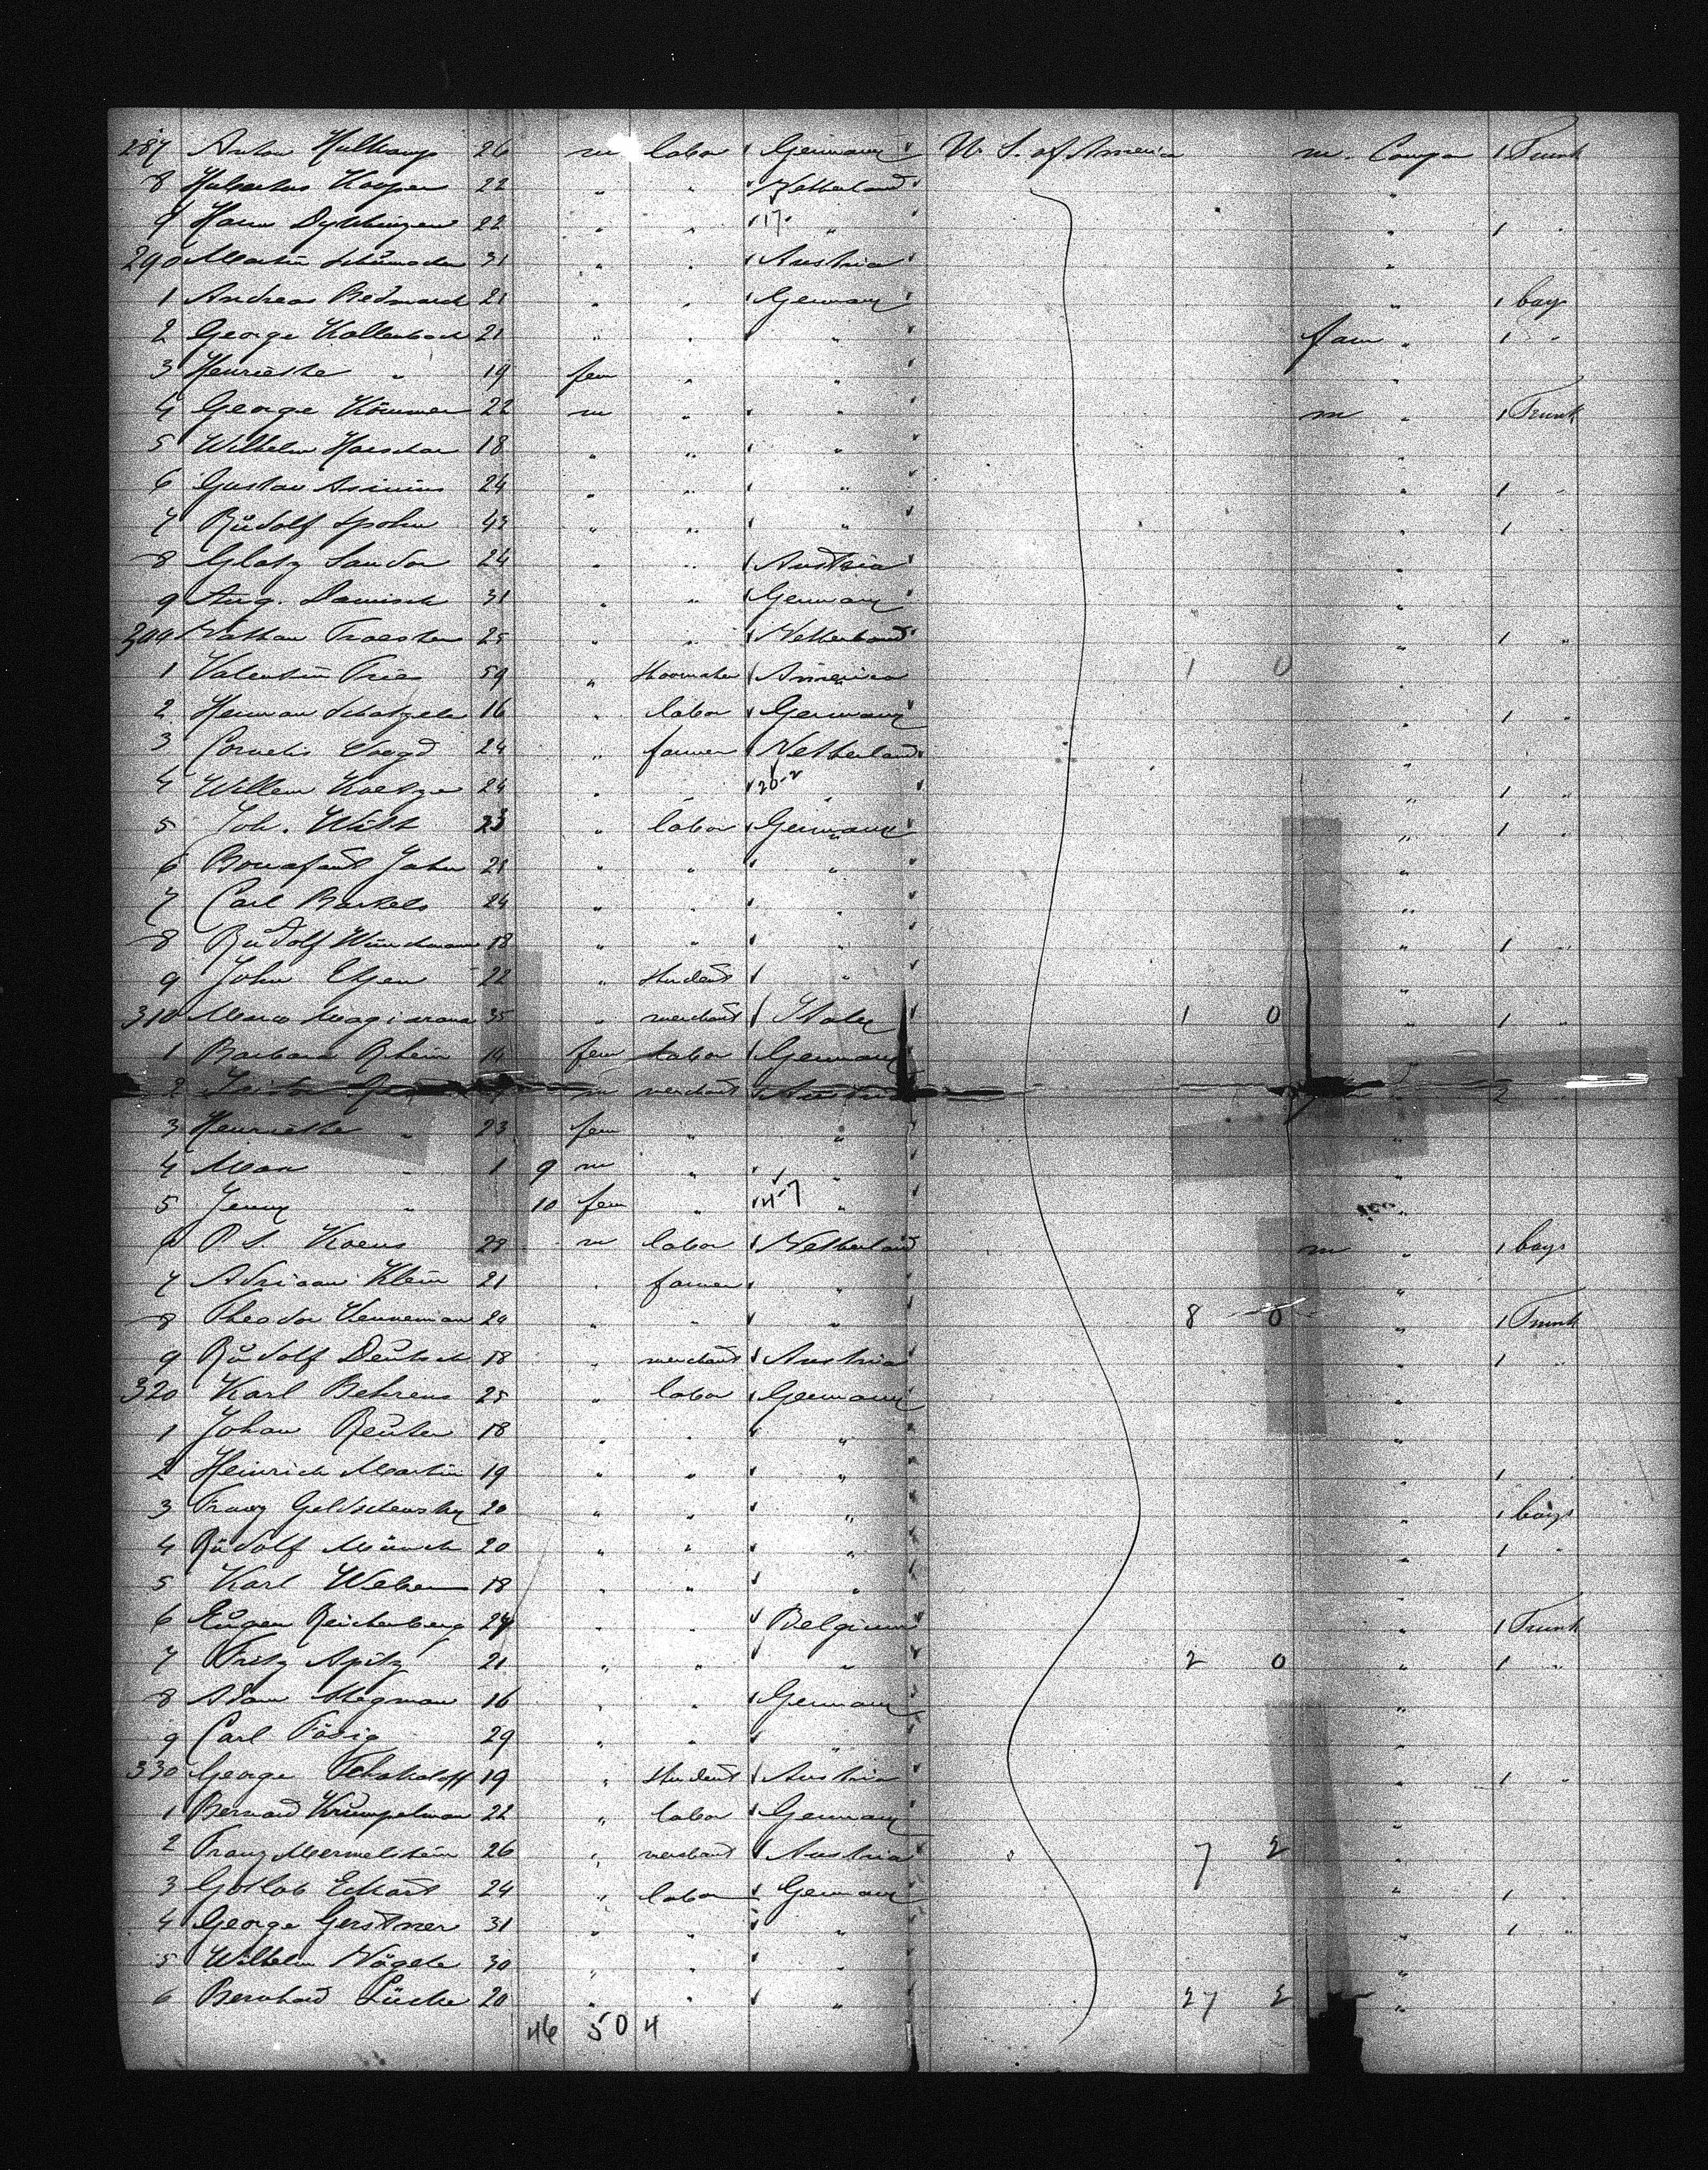 287 Anton Hulkamp 26 m labor Germany U. S. of America m. Compa 1 Trunk
8 Hubertus Kooper 22 " " Netherland "
9 Harm 22 " " 17- " " 1 "
290 Martin Schumacher 31 " " Austria "
1 Andreas Bedmarck 21 " " Germany " 1 bag
2 George Kallenbach 21 " " " fam " 1 "
3 Henriethe " 19 fem " "
4 George Kömmer 22 m " " m " 1 Trunk
5 Wilhelm 18 " " " "
6 Gustav 24 " " " " 1 "
7 Rudolf Spohn 43 " " " " 1 "
8 Glatz Sandor 24 " " Austria "
9 Aug. Damisch 31 " " Germany "
300 Nathan 25 " " Netherland " 1 "
1 Valentin Fries 59 " shoemaker America 1 0 "
2 Herman 16 " labor Germany " 1 "
3 Cornelis Voogd 24 " farmer Netherland "
4 Willem Koetze 24 " " 20-2 " " 1 "
5 Joh. Witt 23 " labor Germany " 1 "
6 John 21 " " " "
7 Carl Barkels 24 " " " "
8 Rudolf 18 " " " " 1 "
9 John 22 " student " "
310 Marco 35 " merchant Italy 1 0 " 1 "
1 Barbara Rhein 14 fem labor Germany
2 m merchant "
3 Henriethe " 23 fem " " "
4 Max " 1 9 m " " "
5 Jenny " 10 fem " 4-7 " "
6 P. S. Koens 28 m labor Netherland m " 1 bag
7 Adriaan Klein 21 " farmer " "
8 Theodor Kenneman 24 " " " 8 0 " 1 Trunk
9 Rudolf Deutsch 18 " merchant Austria " 1 "
320 Karl Behrens 25 " labor Germany "
1 Johan Reuter 18 " " " "
2 Heinrich Martin 19 " " " " 1 "
3 Franz 20 " " " " 1 bag
4 Rudolf Münch 20 " " " " 1 "
5 Karl Weber 18 " " " "
6 Eugen Reichenberg 24 " " Belgium " 1 Trunk
7 Fritz Apitz 21 " " " 2 0 " 1 "
8 Adam Stegman 16 " " Germany "
9 Carl 29 " " "
330 George 19 " student Austria " 1 "
1 Bernard Krümpelman 22 " labor Germany "
2 Franz Mermelstein 26 " merchant Austria 7 2 "
3 Gotlob Eckart 24 " labor Germany " 1 "
4 George Gerstner 31 " " " " 1 "
5 Wilhelm Nägele 30 " " " "
6 Bernhard Lücke 20 " " " 27 2 "
46 50 4